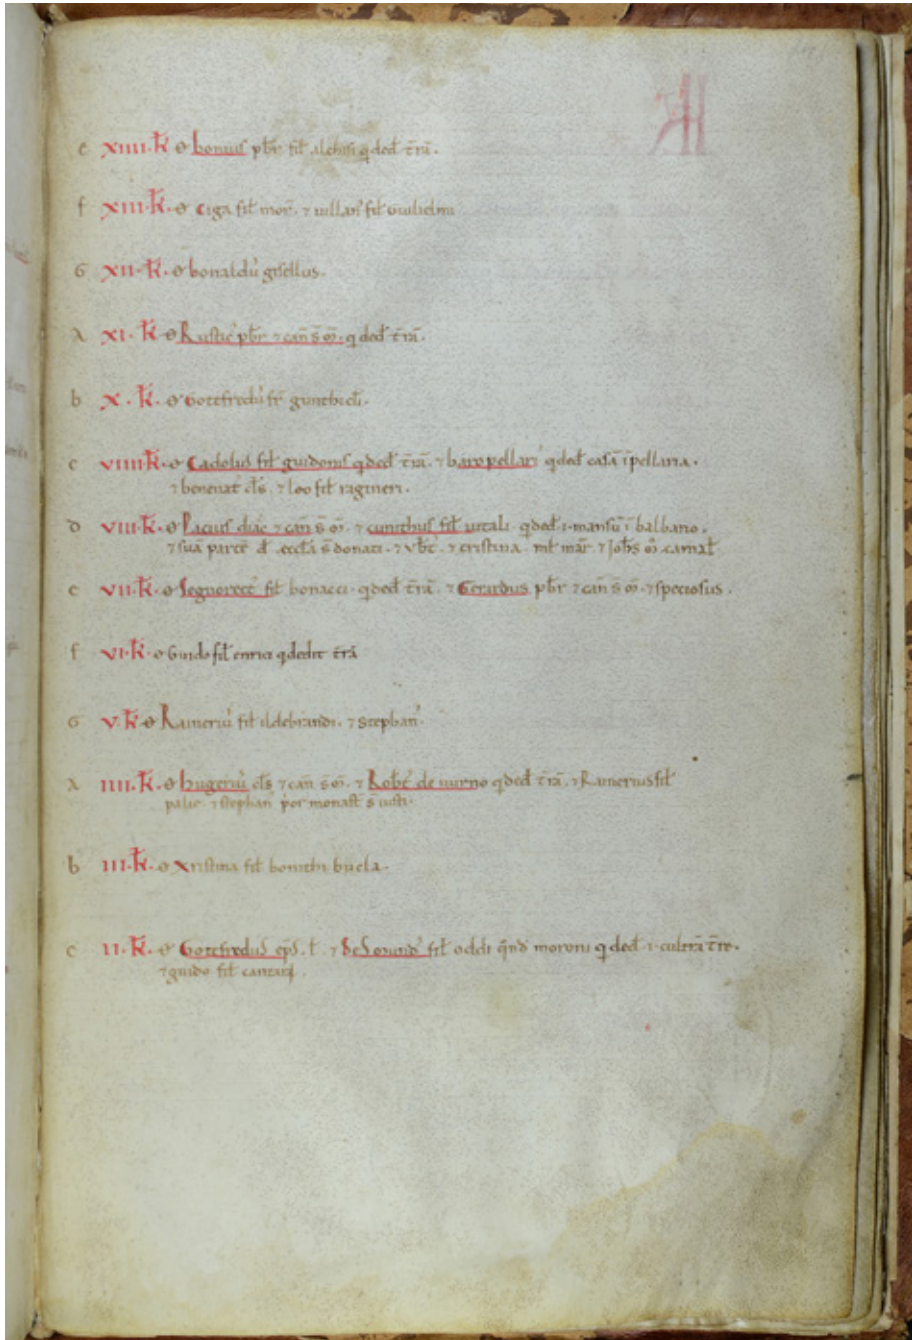 e xiiii·k̅ · ɵ bonus pb̅r fil̅ ildini q ded̅ t̅rā.
f xiii·k̅ · ɵ Ciga fil̅ mor̅. ⁊ uillan᾽ fil̅ Guilielmi
G xii·k̅ · ɵ bonaldu᾽ gisellus.
A xi·k̅ · ɵ Rustic᾽ pb̅r ⁊ can̅ s̅ m̅. q ded̅ t̅rā.
b x·k̅ · ɵ Gottfredu᾽ fr̅ gunthieli.
c viiii·k̅ · ɵ Cadolus fil̅ guidonis q ded̅ t̅rā. ⁊ baropellari᾽ q ded̅ casā ī pellaria.
⁊ benenat cl̅s. ⁊ leo fil̅ ragineri.
d viii·k̅ · ɵ Pacius diac̅ ⁊ can̅ s̅ m̅. ⁊ cunithus fil̅ uitali. q ded̅ ·i· mansū ī balbano.
⁊ suā partē d̅ eccl̅a s̅ donati. ⁊ Vb̅t. ⁊ cristina. ml̅ mar̅. ⁊ Joh̅s m̅ camal̅
e vii·k̅ · ɵ Segnorect᾽ fil̅ bonacci. q ded̅ t̅rā. ⁊ Gerardus pb̅r ⁊ can̅ s̅ m̅. ⁊ speciosus.
f vi·k̅ · ɵ Guido fil̅ enrici q dedit t̅rā
G v·k̅ · ɵ Raineriu᾽ fil̅ ildebrandi. ⁊ Stephan᾽.
A iiii·k̅ · ɵ hugeriu᾽ cl̅s ⁊ can̅ s̅ m̅. ⁊ Rob̅t de uurno q ded̅ t̅rā. ⁊ Rainerius fil̅
palie. ⁊ stephan᾽ p̅or monast̅ s̅ iusti.
b iii·k̅ · ɵ Xristina fil̅ bonithi bucla.
c ii·k̅ · ɵ Gottefredus ep̅s. l̅. ⁊ fil̅ oddi q̅nd̅ moroni q ded̅ ·i· culturā t̅re.
⁊ guido fil̅